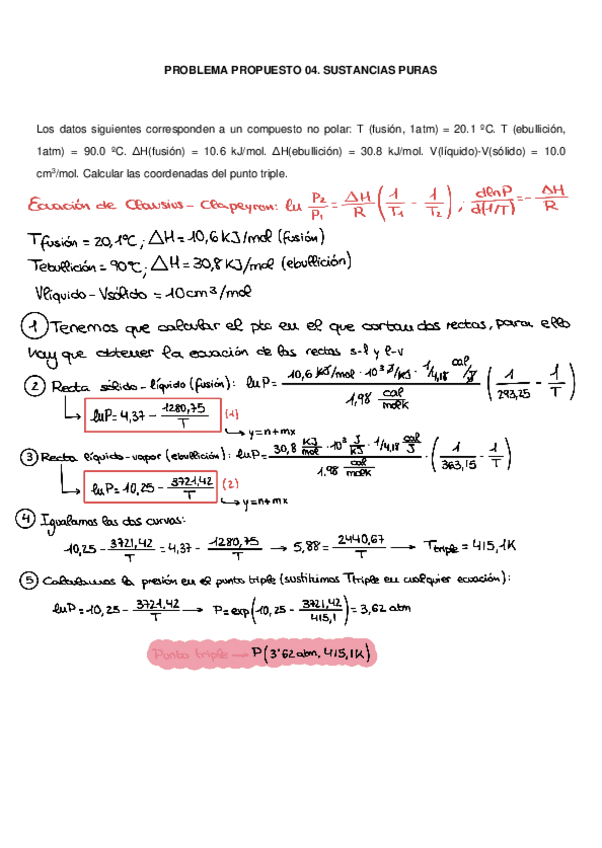 PROBLEMA PROPUESTO 04. SUSTANCIAS PURAS
Los datos siguientes corresponden a un compuesto no polar: T (fusión, 1atm) = 20.1 ºC. T (ebullición,
1atm) = 90.0 ºC. ΔH(fusión) = 10.6 kJ/mol. ΔH(ebullición) = 30.8 kJ/mol. V(líquido)-V(sólido) = 10.0
cm³/mol. Calcular las coordenadas del punto triple.
Ecuación de Clausius-Clapeyron: ln P2/P1 = ΔH/R (1/T1 - 1/T2) ; dlnP/d(1/T) = - ΔH/R
Tfusión = 20,1ºC ; ΔH = 10,6 KJ/mol (fusión)
Tebullición = 90ºC ; ΔH = 30,8 KJ/mol (ebullición)
Vlíquido - Vsólido = 10 cm³/mol
① Tenemos que calcular el pto en el que cortan dos rectas, para ello
hay que obtener la ecuación de las rectas s-l y l-v
② Recta sólido-líquido (fusión): lnP = 10,6 KJ/mol · 10³ J/KJ · 1/4,18 cal/J / 1,98 cal/molK (1/293,25 - 1/T)
lnP = 4,37 - 1280,75/T (1)
y = n+mx
③ Recta líquido-vapor (ebullición): lnP = 30,8 KJ/mol · 10³ J/KJ · 1/4,18 cal/J / 1,98 cal/molK · (1/363,15 - 1/T)
lnP = 10,25 - 3721,42/T (2)
y = n+mx
④ Igualamos las dos curvas:
10,25 - 3721,42/T = 4,37 - 1280,75/T → 5,88 = 2440,67/T → Ttriple = 415,1K
⑤ Calculamos la presión en el punto triple (sustituimos Ttriple en cualquier ecuación):
lnP = 10,25 - 3721,42/T → P = exp(10,25 - 3721,42/415,1) = 3,62 atm
Punto triple → P(3'62 atm, 415,1K)